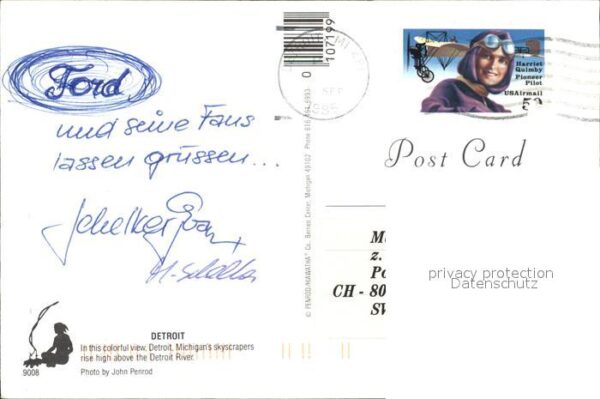 Ford
und seine Fans
lassen grüssen...
DETROIT
In this colorful view, Detroit, Michigan's skyscrapers
rise high above the Detroit River.
9008
Photo by John Penrod
© PENROD/HIAWATHA Co. Berrien Center, Michigan 49102 Phone 616-461-6993
0 107199
SEP
1995
Harriet
Quimby
Pioneer
Pilot
USAirmail
Post Card
z.
CH - 80
privacy protection
Datenschutz